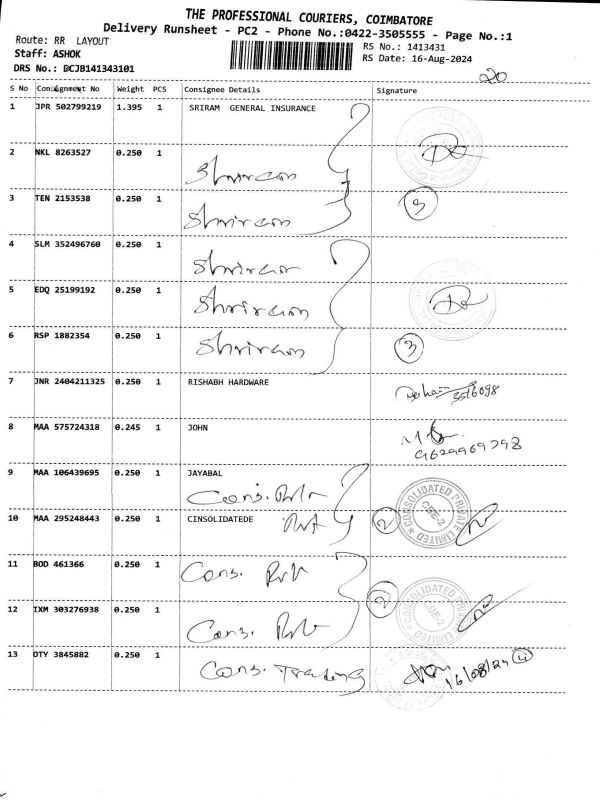 THE PROFESSIONAL COURIERS, COIMBATORE
Delivery Runsheet - PC2 - Phone No.:0422-3505555 - Page No.:1
Route: RR LAYOUT
RS No.: 1413431
Staff: ASHOK
RS Date: 16-Aug-2024
DRS No.: DCJB141343101
20
S No Consignment No Weight PCS Consignee Details Signature
1 JPR 502799219 1.395 1 SRIRAM GENERAL INSURANCE
2 NKL 8263527 0.250 1 Shriram
3 TEN 2153538 0.250 1 Shriram 3
4 SLM 352496760 0.250 1 Shriram
5 EDQ 25199192 0.250 1 Shriram
6 RSP 1882354 0.250 1 Shriram 3
7 JNR 2404211325 0.250 1 RISHABH HARDWARE
8 MAA 575724318 0.245 1 JOHN
9629969798
9 MAA 106439695 0.250 1 JAYABAL
Cons. Pvt
10 MAA 295248443 0.250 1 CINSOLIDATEDE Pvt 2
CONSOLIDATED PRIVATE LIMITED
CBE-2
11 BOD 461366 0.250 1 Cons. Pvt
12 IXM 303276938 0.250 1 Cons. Pvt 2
CONSOLIDATED PRIVATE LIMITED
CBE-2
13 OTY 3845882 0.250 1 Cons. Trading 16/08/24 4